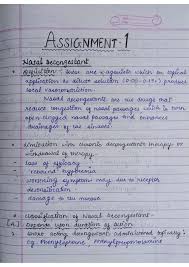 ASSIGNMENT-1
Nasal decongestant
Definition: These are α-agonists which on topical
application as dilute solution (0.05-0.1%) produce
local vasoconstriction.
Nasal decongestants are the drugs that
reduce congestion of nasal passages which in turn
open clogged nasal passages and enhances
drainage of the sinuses.
Limitation with chronic decongestants therapy or
withdrawal of therapy
- loss of efficacy
- rebound hyperemia
- worsening symptoms may due to receptor
desensitisation
- damage to the mucosa
Classification of Nasal Decongestant:-
[A.] Depends upon duration of action
Short acting decongestants administered topically:-
eg. Phenylephrine, Phenylpropanolamine